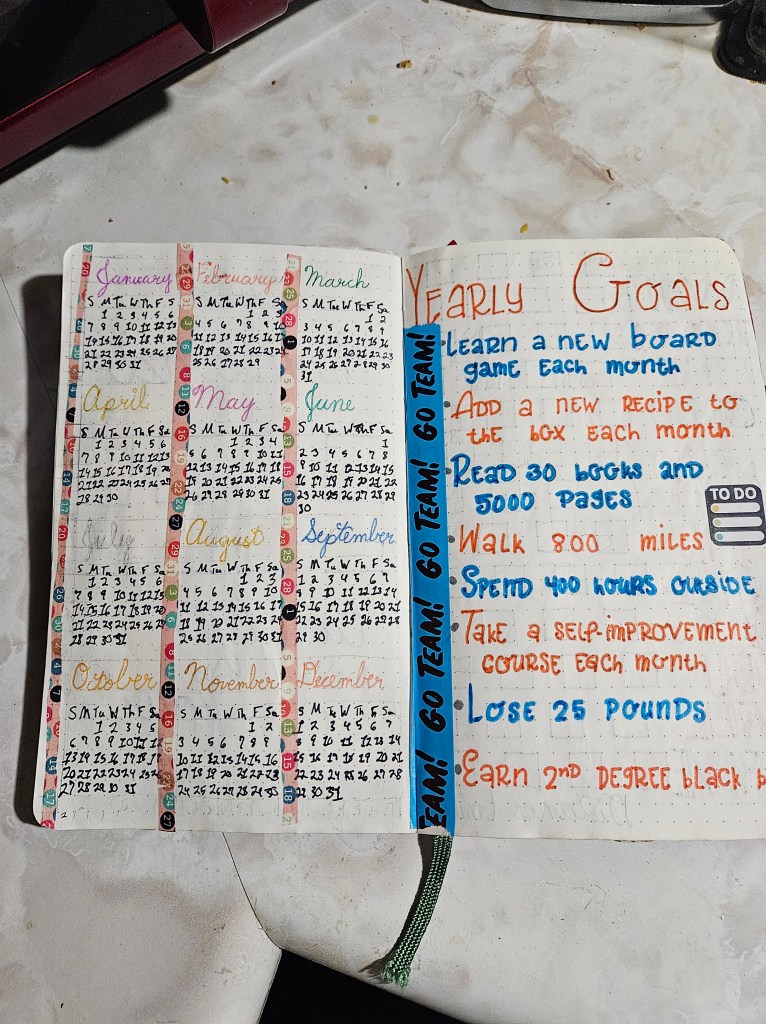 January
S M Tu W Th F S
1 2 3 4 5 6
7 8 9 10 11 12 13
14 15 16 17 18 19 20
21 22 23 24 25 26 27
28 29 30 31
February
S M Tu W Th F Sa
1 2 3
4 5 6 7 8 9 10
11 12 13 14 15 16 17
18 19 20 21 22 23 24
25 26 27 28 29
March
S M Tu W Th F Sa
1 2
3 4 5 6 7 8 9
10 11 12 13 14 15 16
17 18 19 20 21 22 23
24 25 26 27 28 29 30
31
April
S M Tu W Th F Sa
1 2 3 4 5 6
7 8 9 10 11 12 13
14 15 16 17 18 19 20
21 22 23 24 25 26 27
28 29 30
May
S M Tu W Th F Sa
1 2 3 4
5 6 7 8 9 10 11
12 13 14 15 16 17 18
19 20 21 22 23 24 25
26 27 28 29 30 31
June
S M Tu W Th F Sa
1
2 3 4 5 6 7 8
9 10 11 12 13 14 15
16 17 18 19 20 21 22
23 24 25 26 27 28 29
30
July
S M Tu W Th F Sa
1 2 3 4 5 6
7 8 9 10 11 12 13
14 15 16 17 18 19 20
21 22 23 24 25 26 27
28 29 30 31
August
S M Tu W Th F Sa
1 2 3
4 5 6 7 8 9 10
11 12 13 14 15 16 17
18 19 20 21 22 23 24
25 26 27 28 29 30 31
September
S M Tu W Th F Sa
1 2 3 4 5 6 7
8 9 10 11 12 13 14
15 16 17 18 19 20 21
22 23 24 25 26 27 28
29 30
October
S M Tu W Th F Sa
1 2 3 4 5
6 7 8 9 10 11 12
13 14 15 16 17 18 19
20 21 22 23 24 25 26
27 28 29 30 31
November
S M Tu W Th F Sa
1 2
3 4 5 6 7 8 9
10 11 12 13 14 15 16
17 18 19 20 21 22 23
24 25 26 27 28 29 30
December
S M Tu W Th F Sa
1 2 3 4 5 6 7
8 9 10 11 12 13 14
15 16 17 18 19 20 21
22 23 24 25 26 27 28
29 30 31
2
YEARLY GOALS
GO TEAM! GO TEAM! GO TEAM! EAM!
LEARN a NEW bOARD
gAME EACH month
ADD a NEW RECIPE to
the box EACH month
READ 30 books AND
5000 PAgES
WALK 800 MILES
TO DO
SPEND 400 hours outside
TAKE a SELF-iMPROVEMENT
COURSE EACH month
LOSE 25 POUNDS
EARN 2ND DEGREE bLACK b